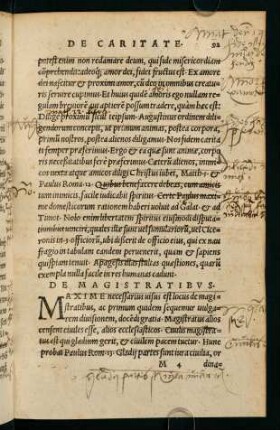 DE CARITATE. 92
potest enim non reclamare deum, qui fide misericordiam
cõprehendit: adeoq; amor dei, fidei fructus est. Ex amore
dei nascitur & proximi amor, cũ deo in omnibus creatu
ris seruire cupimus. Et huius quidẽ amoris ego nullam re
gulam breuiorẽ aut aptiorẽ possum tradere, quàm hæc est:
Dilige proximũ sicut teipsum. Augustinus ordinem dili
gendorum concepit, ut primum animas, postea corpora,
primũ nostros, postea alienos diligamus. Nos fidem carita
ti semper præferimus. Ergo & ea quæ sunt animæ, corpo
ris necessitatibus ferè præferimus. Cæterũ alienos, inimi
cos iuxta atque amicos diligi Christus iubet, Matth. 5. &
Paulus Roma. 12. Quibus benefacere debeas, cum
inimicis, facile iudicabit spiritus. Certè Paulus maxi
mè domesticorum rationem haberi uoluit ad Galat. & ad
Timot. Nolo enim libertatem spiritus eiusmodi disputa
tionibus
ronis in 3. officiorũ, ubi disserit de officio eius, qui ex nau
fragio in tabulam eandem peruenerit, quàm & sapiens
quispiam innate. Apage stultas questiones, quarũ
exempla nulla facile in res humanas cadunt.
DE MAGISTRATIBVS.
MAXIME necessarius uisus est locus de magi
stratibus, ac primum quidem sequemur uulga
rem diuisionem, docẽdi gratia. Magistratus alios
censent ciuiles esse, alios ecclesiasticos. Ciuilis magistra
tus est qui gladium gerit, & ciuilem pacem tuetur. Hunc
probat Paulus Rom. 13. Gladij partes sunt iura ciuilia, or
M 4 dina-